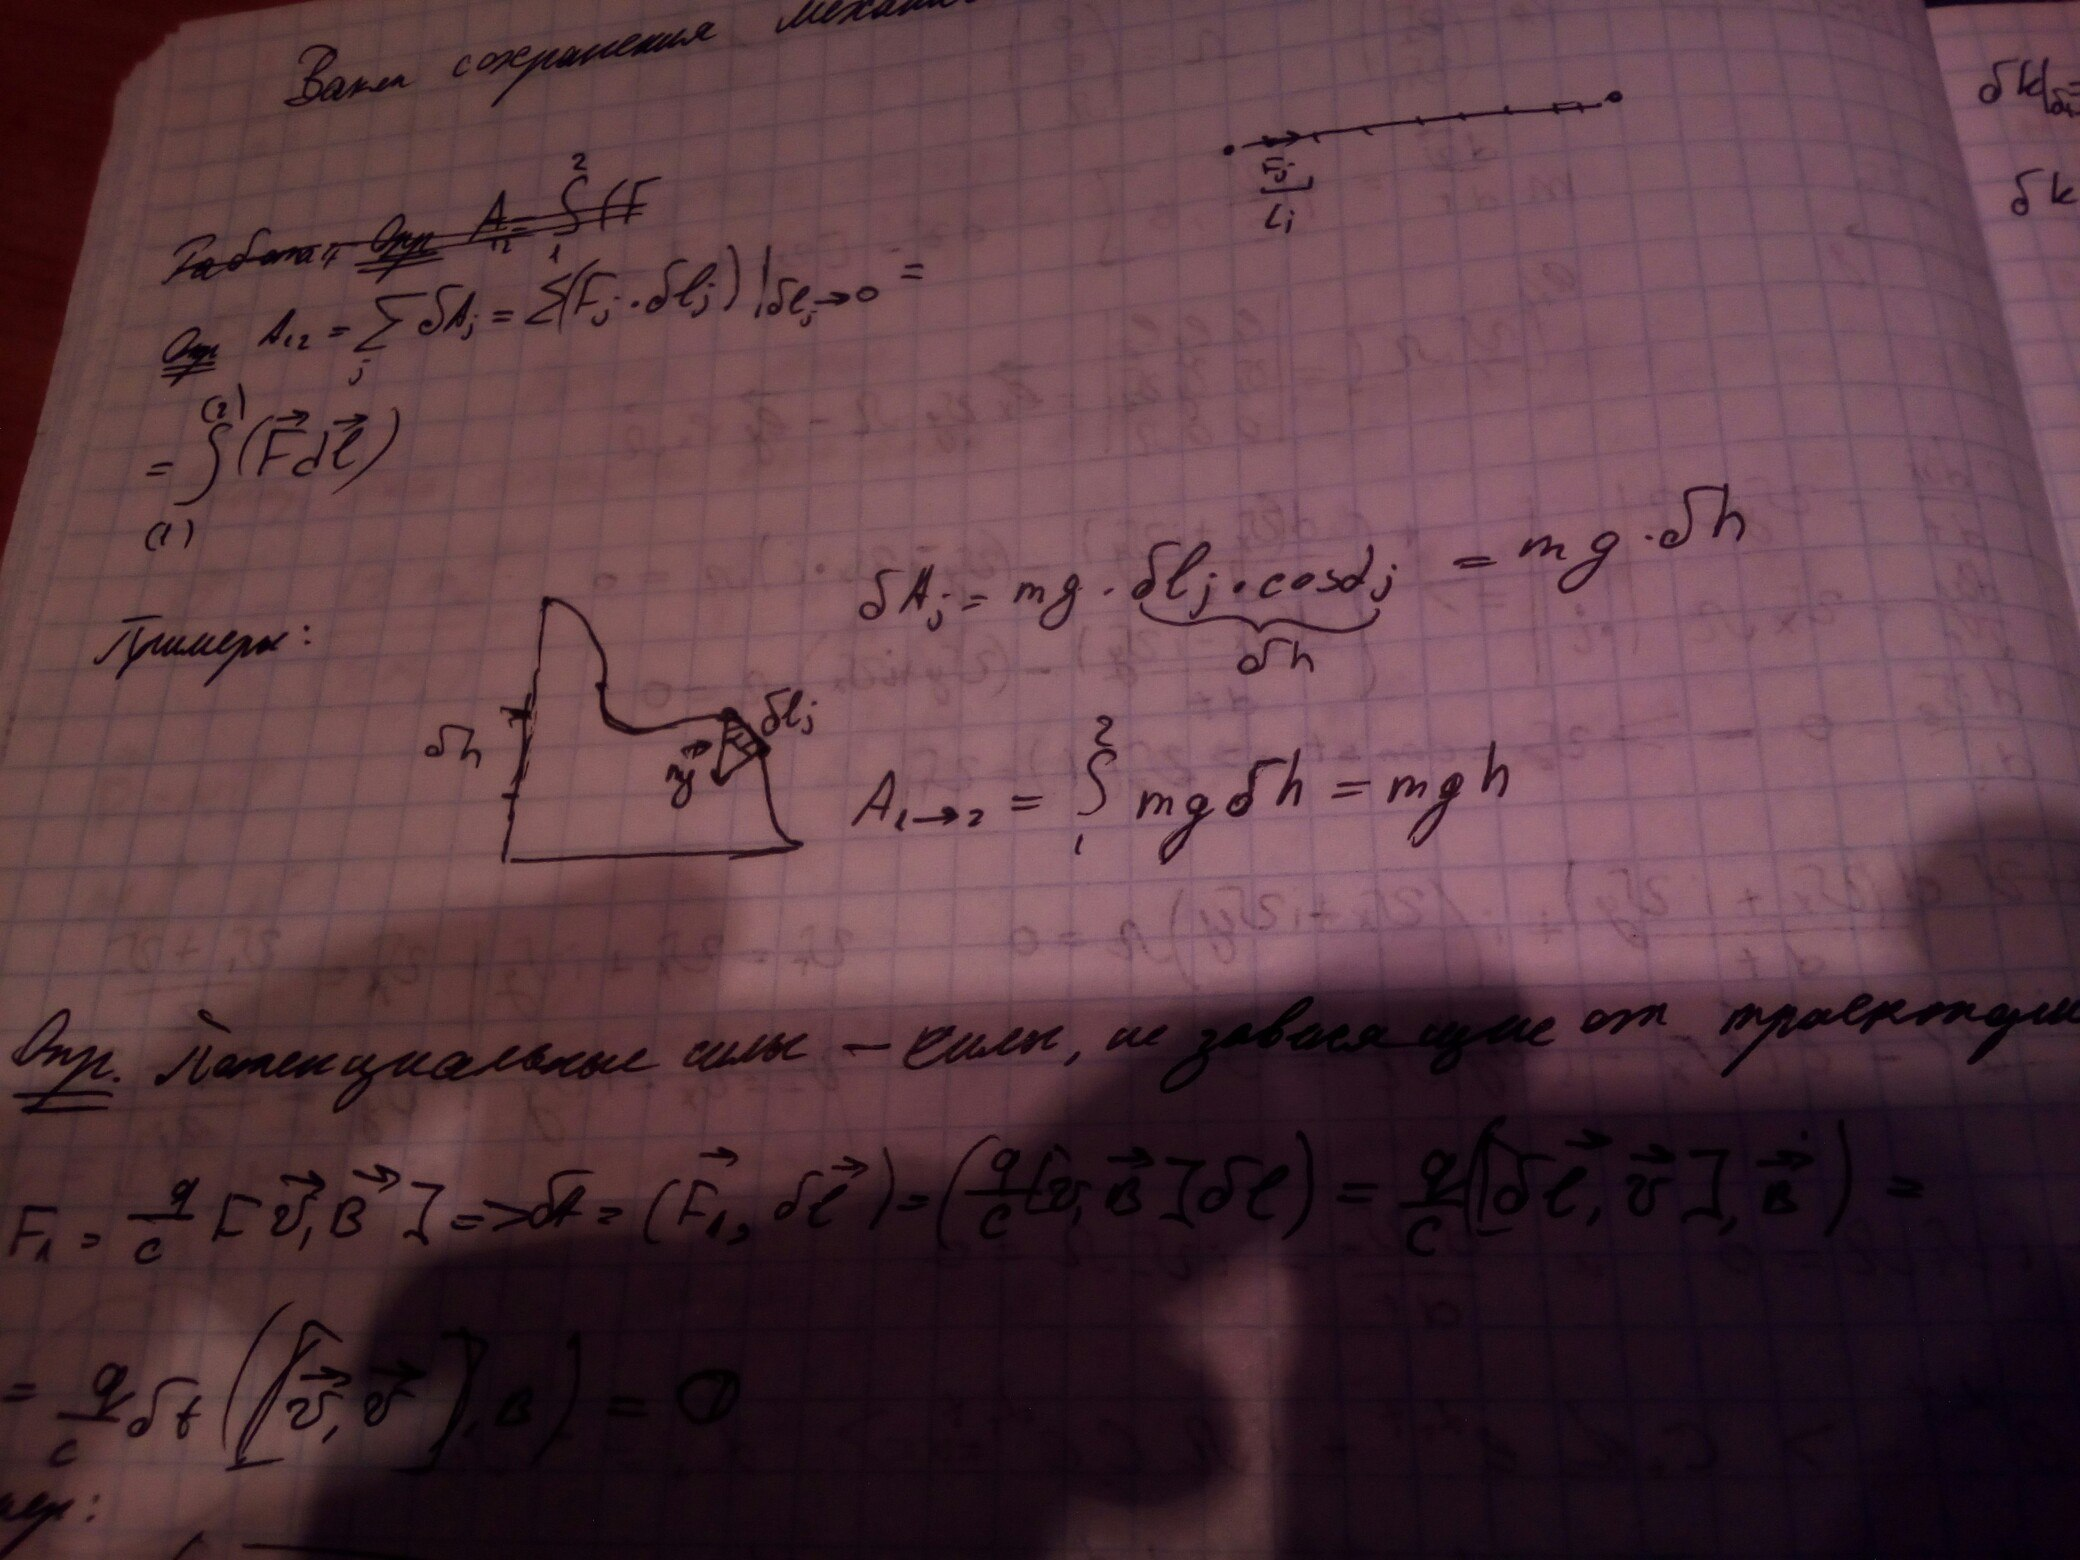 Закон сохранения механи
Работа, Опр A₁₂ = ∫₁² (F
Опр A₁₂ = ∑ⱼ δAⱼ = ∑(Fⱼ · δlⱼ)|δlⱼ→0 =
= ∫₍₁₎⁽²⁾ (F⃗ dl⃗)
Fⱼ
Lⱼ
δk|
δk
Примеры:
δh
mg⃗
δlⱼ
δAⱼ = mg · δlⱼ · cosαⱼ = mg · δh
δh
A₁→₂ = ∫₁² mg δh = mgh
Опр. Потенциальные силы – силы, не зависящие от траектории
F₁ = q/c [v⃗, B⃗] => δA = (F⃗₁, δl⃗) = (q/c [v, B⃗] δl) = q/c ([δl⃗, v⃗], B⃗) =
= q/c δt ([v⃗, v⃗], B) = 0
мер: